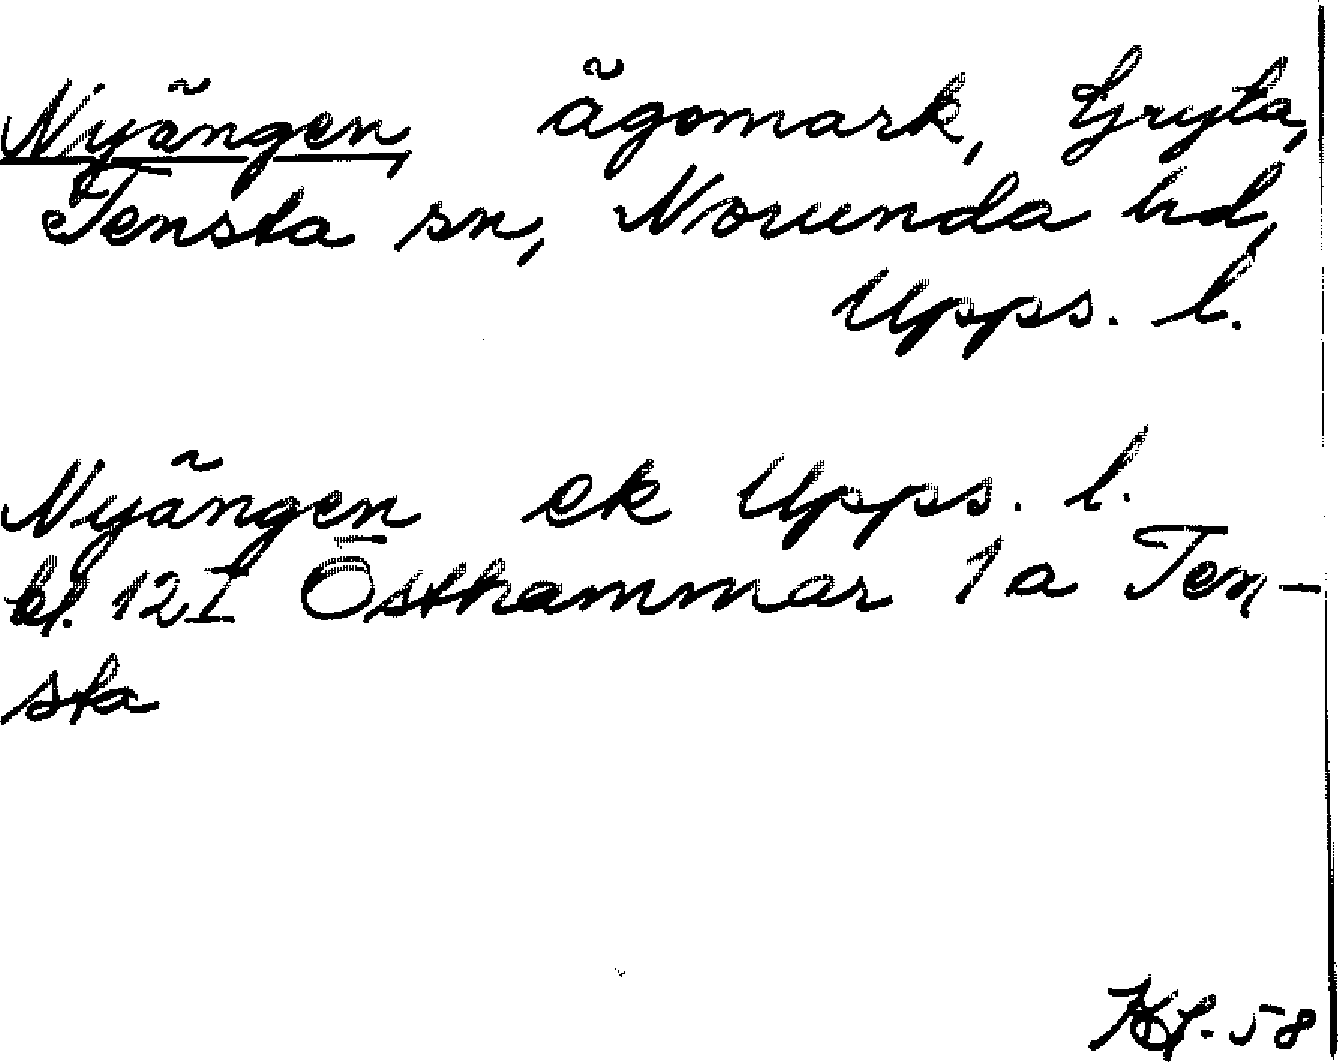 Nyängen, ägomark, Gryta,
Tensta sn, Norunda hd,
Upps. l.
Nyängen ek Upps. l.
bl. 12I Östhammar 1a Ten-
sta
58